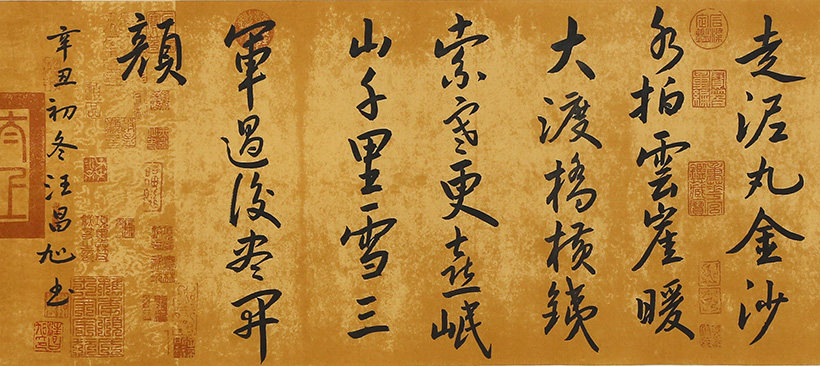 走泥丸金沙
水拍雲崖暖
大渡橋横銕
索寒更喜岷
山千里雪三
軍過後盡開
顔
辛丑初冬汪昌旭书